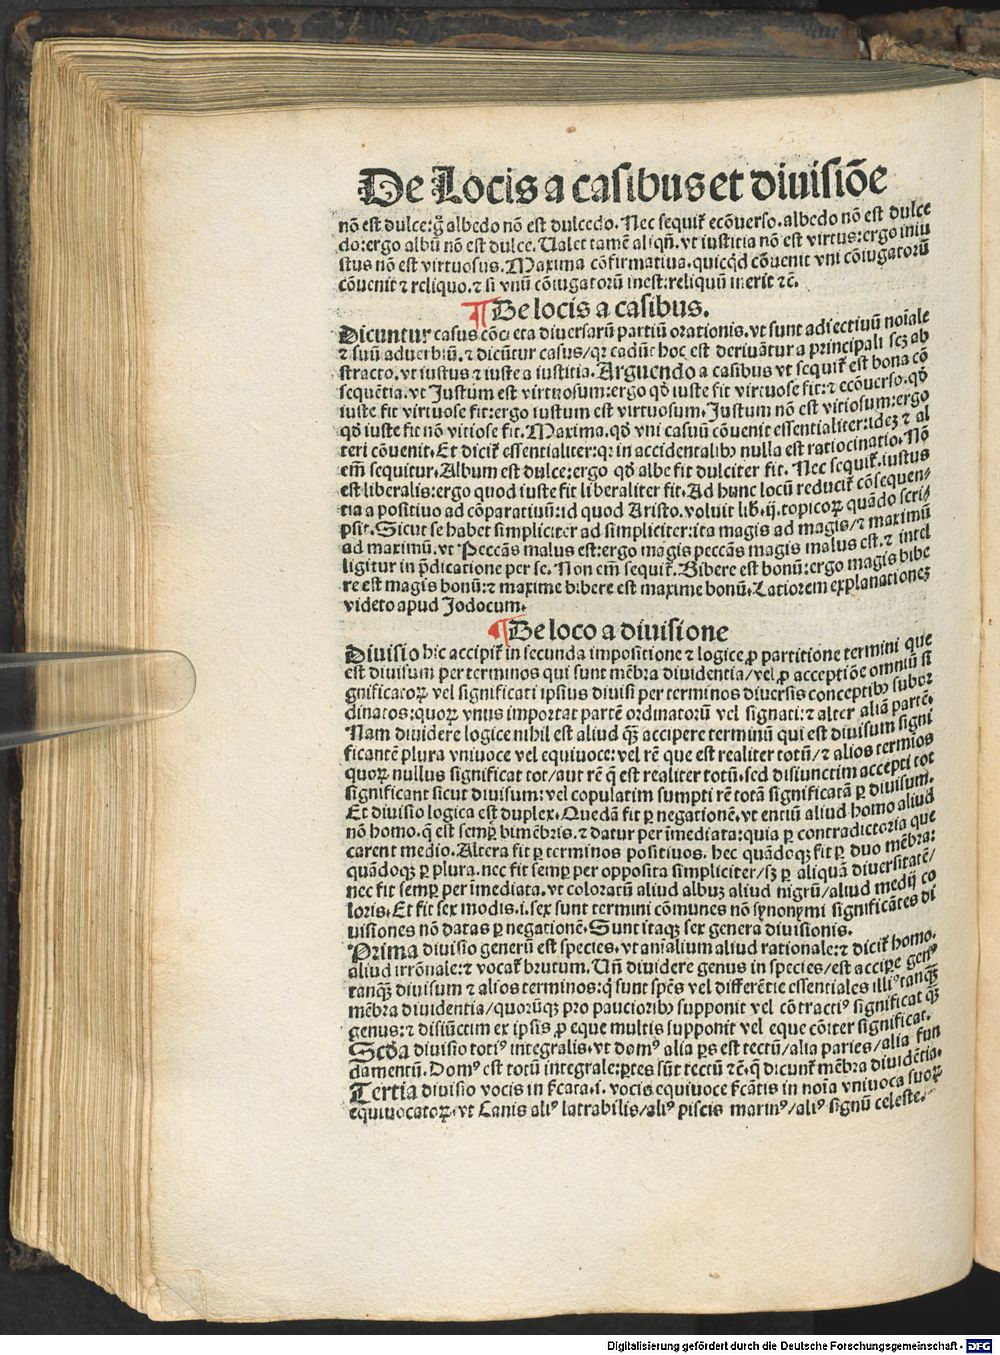 De Locis a casibus et diuisiõe
nõ est dulce:g̃ albedo nõ est dulcedo. Nec sequit̃ ecõuerso. albedo nõ est dulce
do:ergo albũ nõ est dulce. Ualet tamẽ aliqñ. vt iustitia nõ est virtus:ergo iniu
stus nõ est virtuosus. Maxima cõfirmatiua. quicqd cõuenit vni cõiugatorũ
cõuenit ⁊ reliquo. ⁊ si vnũ cõiugatorũ inest:reliquũ inerit ⁊c̃.
¶ De locis a casibus.
Dicuntur casus cõcreta diuersarũ partiũ orationis. vt sunt adiectiuũ noĩale
⁊ suũ aduerbiũ. ⁊ dicũtur casus/qꝛ cadũt hoc est deriuãtur a principali scꝫ ab
stracto. vt iustus ⁊ iuste a iustitia. Arguendo a casibus vt sequit̃ est bona cõ
sequẽtia. vt Justum est virtuosum:ergo qð iuste fit virtuose fit:⁊ ecõuerso. qð
iuste fit virtuose fit:ergo iustum est virtuosum. Justum nõ est vitiosum:ergo
qð iuste fit nõ vitiose fit. Maxima. qð vni casuũ cõuenit essentialiter:ideꝫ ⁊ al
teri cõuenit. Et dicit̃ essentialiter:qꝛ in accidentalibꝫ nulla est ratiocinatio. Nõ
em̃ sequitur. Album est dulce:ergo qð albe fit dulciter fit. Nec sequit̃. iustus
est liberalis:ergo quod iuste fit liberaliter fit. Ad hunc locũ reducit̃ cõsequen⸗
tia a positiuo ad cõparatiuũ:id quod Aristo. voluit lib̃. ij. topicoꝝ quãdo scri⸗
psit. Sicut se habet simpliciter ad simpliciter:ita magis ad magis/⁊ maximũ
ad maximũ. vt Peccãs malus est:ergo magis peccãs magis malus est. ⁊ intel
ligitur in p̃dicatione per se. Non em̃ sequit̃. Bibere est bonũ:ergo magis bibe
re est magis bonũ:⁊ maxime bibere est maxime bonũ. Latiorem explanationeꝫ
videto apud Jodocum.
¶ De loco a diuisione
Diuisio hic accipit̃ in secunda impositione ⁊ logice ꝓ partitione termini que
est diuisum per terminos qui sunt mẽbra diuidentia/vel ꝓ acceptiõe omniũ si
gnificatoꝝ vel significati ipsius diuisi per terminos diuersis conceptibꝫ subor
dinatos:quoꝝ vnus importat partẽ ordinatorũ vel signati:⁊ alter aliã partẽ.
Nam diuidere logice nihil est aliud q̃ꝫ accipere terminũ qui est diuisum signi
ficantẽ plura vniuoce vel equiuoce: vel rẽ que est realiter totũ/⁊ alios termios
quoꝝ nullus significat tot/aut rẽ q̃ est realiter totũ. sed disiunctim accepti tot
significant sicut diuisum: vel copulatim sumpti rẽ totã significatã ꝑ diuisum.
Et diuisio logica est duplex. Quedã fit ꝑ negationẽ. vt entiũ aliud homo aliud
nõ homo. q̃ est semꝑ bimẽbris. ⁊ datur per ĩmediata:quia ꝑ contradictoria que
carent medio. Altera fit ꝑ terminos positiuos. hec quãdoqꝫ fit ꝑ duo mẽbra:
quãdoqꝫ ꝑ plura. nec fit semꝑ per opposita simpliciter/sꝫ ꝑ aliquã diuersitatẽ/
nec fit semꝑ per ĩmediata. vt coloratũ aliud albuꝫ aliud nigrũ/aliud medij co
loris. Et fit sex modis. i. sex sunt termini cõmunes nõ synonymi significãtes di
uisiones nõ datas ꝑ negationẽ. Sunt itaqꝫ sex genera diuisionis.
Prima diuisio generũ est species. vt anĩalium aliud rationale:⁊ dicit̃ homo.
aliud irrõnale:⁊ vocat̃ brutum. Uñ diuidere genus in species/est accipe genꝰ
tanq̃ꝫ diuisum ⁊ alios terminos:q̃ sunt spẽs vel differẽtie essentiales illiꝰ tanq̃ꝫ
mẽbra diuidentia/quorũqꝫ pro paucioribꝫ supponit vel cõtractiꝰ significat q̃ꝫ
genus:⁊ disiũctim ex ipsis ꝓ eque multis supponit vel eque cõiter significat.
Scðа diuisio totiꝰ integralis. vt domꝰ alia ꝑs est tectũ/alia paries/alia fun
damentũ. Domꝰ est totũ integrale:ꝑtes sũt tectũ ⁊c̃. q̃ dicunt̃ mẽbra diuidẽtia.
Tertia diuisio vocis in s̃cata. i. vocis equiuoce s̃cãtis in noĩa vniuoca suoꝝ
equiuocatoꝝ. vt Canis aliꝰ latrabilis/aliꝰ piscis marinꝰ/aliꝰ signũ celeste.
Digitalisierung gefördert durch die Deutsche Forschungsgemeinschaft - DFG